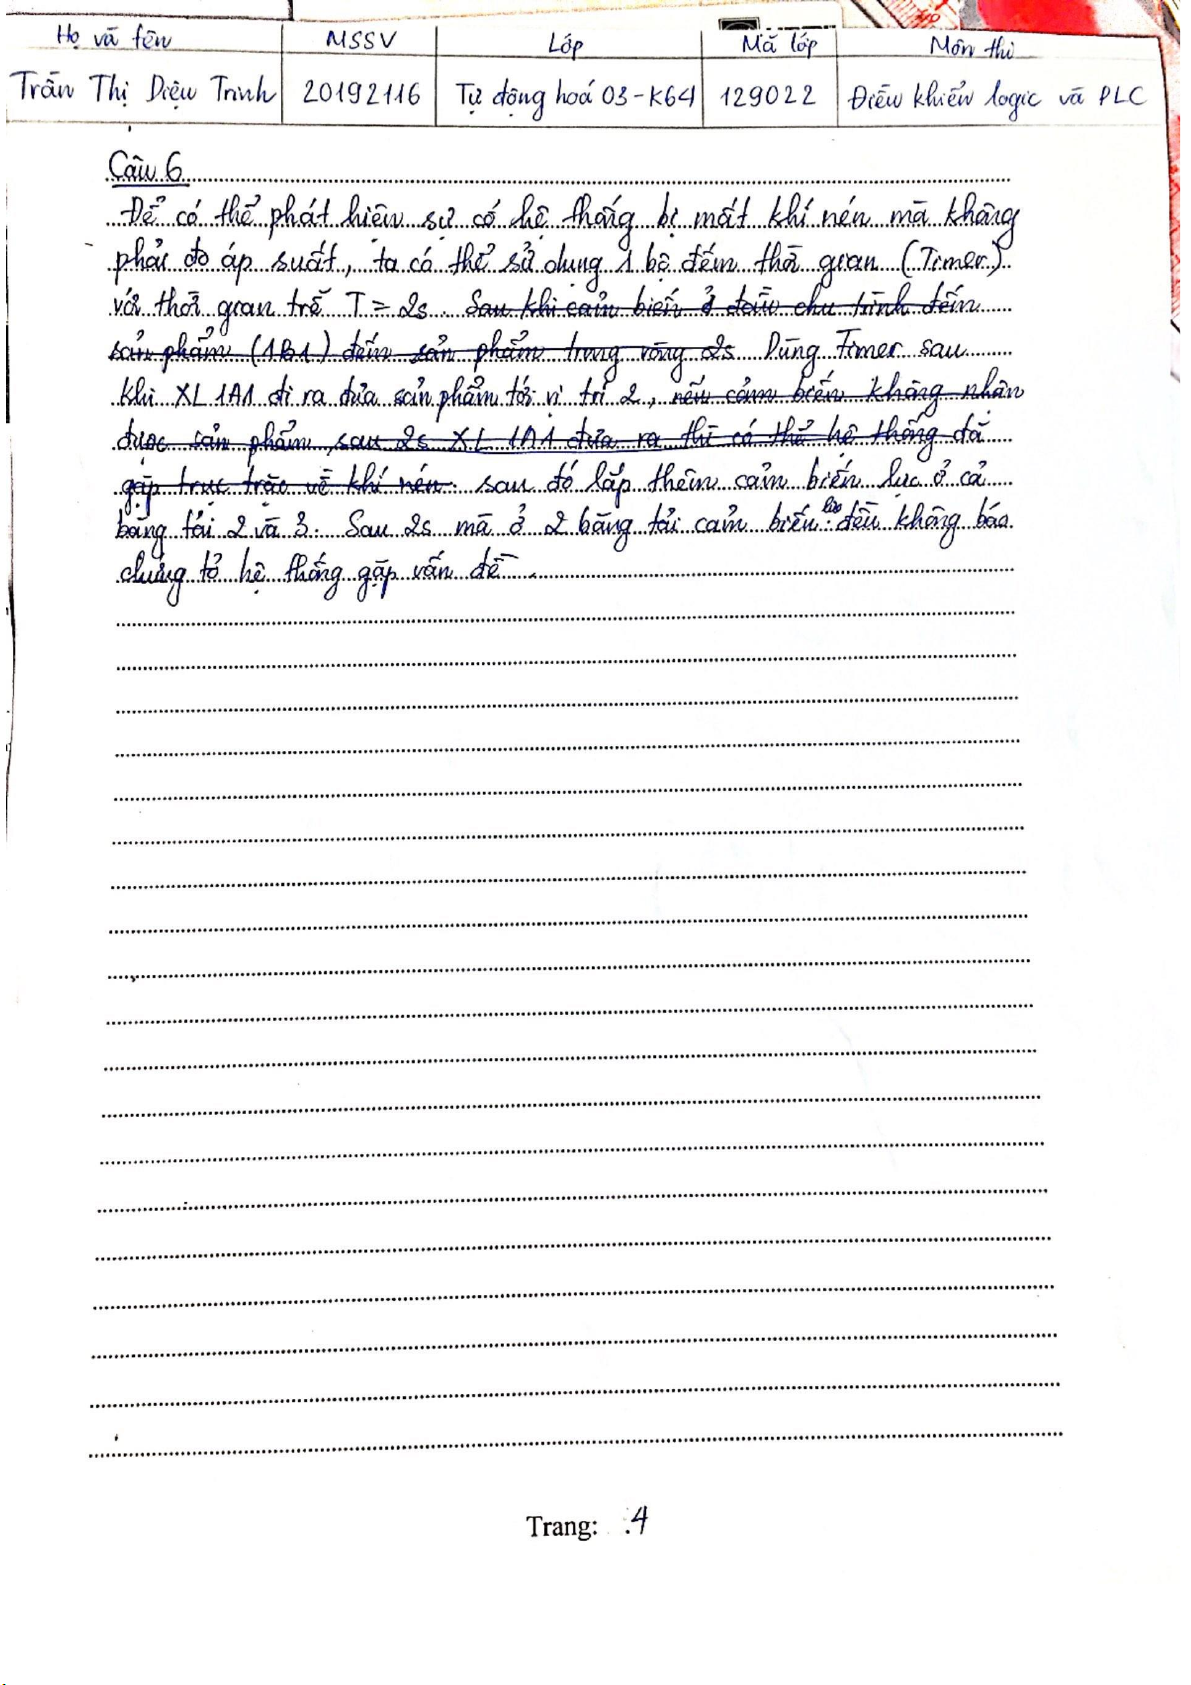 Họ và tên MSSV Lớp Mã lớp Môn thi
Trần Thị Diệu Trinh 20192116 Tự động hoá 03-K64 129022 Điều khiển logic và PLC
Câu 6
Để có thể phát hiện sự cố hệ thống bị mất khí nén mà không
phải đo áp suất, ta có thể sử dụng 1 bộ đếm thời gian (Timer)
với thời gian trễ T = 2s. Sau khi cảm biến ở đầu chu trình đếm
sản phẩm (1B1) đếm sản phẩm trong vòng 2s Dùng Timer sau
khi XL 1A1 đi ra đưa sản phẩm tới vị trí 2, nếu cảm biến không nhận
được sản phẩm, sau 2s XL 1A1 đưa ra thì có thể hệ thống đã
gặp trục trặc về khí nén. sau đó lắp thêm cảm biến lực ở cả
băng tải 2 và 3. Sau 2s mà ở 2 băng tải cảm biến lực đều không báo
chứng tỏ hệ thống gặp vấn đề.
Trang: 4